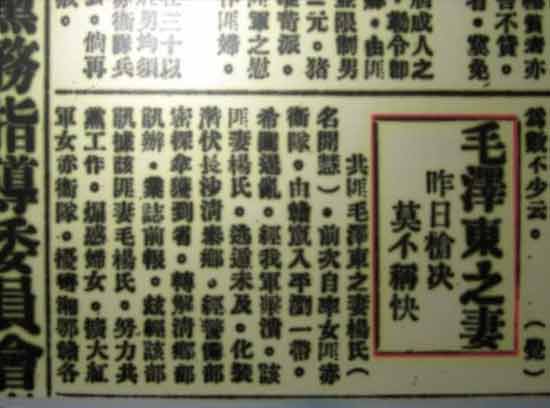 害不貸。黨免
成人之
。黨令卽
婦。由匪
並限制男
二元。猪
苛派。
匪軍之慰
匪婦。
在三十以
男均須
赤衛隊兵
云。倘再
爲數不少云。（覺）
毛澤東之妻
昨日槍決
莫不稱快
共匪毛澤東之妻楊氏（
名開慧）。前次自率女匪赤
衛隊。由贛竄入平瀏一帶。
希圖亂。經我軍潰。該
匪妻楊氏。逃遁未及。化裝
潛伏長沙清泰鄉。經警備部
密探拿獲到省。轉解清鄉部
訊辦。業誌前報。茲經該部
訊據該匪妻毛楊氏。努力共
黨工作。煽惑婦女。擴大紅
軍女赤衛隊。擾害湘鄂贛各
黨務指導委員會